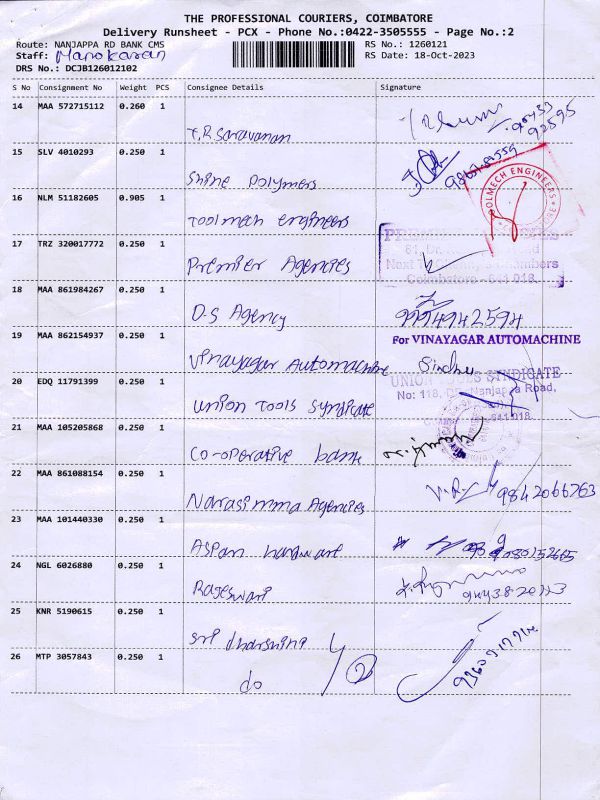 THE PROFESSIONAL COURIERS, COIMBATORE
Delivery Runsheet - PCX - Phone No.:0422-3505555 - Page No.:2
Route: NANJAPPA RD BANK CMS RS No.: 1260121
Staff: Manokaran RS Date: 18-Oct-2023
DRS No.: DCJB126012102
S No Consignment No Weight PCS Consignee Details Signature
14 MAA 572715112 0.260 1
T.R Saravanan
15 SLV 4010293 0.250 1
Shine Polymers
16 NLM 51182605 0.905 1
TOOLMECH ENGINEERS
Toolmech engineers
17 TRZ 320017772 0.250 1
Premier Agencies
Coimbatore - 641 018
18 MAA 861984267 0.250 1
D.S Agency 9994942594
19 MAA 862154937 0.250 1 For VINAYAGAR AUTOMACHINE
Vinayagar Automachine Sindhu
20 EDQ 11791399 0.250 1 UNION TOOLS SYNDICATE
No: 118, Dr. Nanjappa Road,
union Tools Syndicate 641 018
21 MAA 105205868 0.250 1
Co-operative bank
22 MAA 861088154 0.250 1
Narasimma Agencies 9842066763
23 MAA 101440330 0.250 1
ASPan hardware
24 NGL 6026880 0.250 1
Rajeswari
25 KNR 5190615 0.250 1
Sri dharshini
26 MTP 3057843 0.250 1
do 2